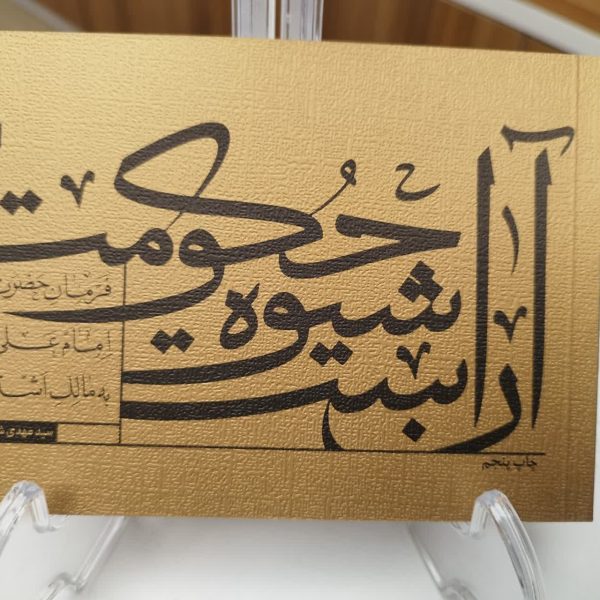 است
شیوه
حکومت
فرمان حضرت
امام علی
به مالک
سید مهدی
چاپ پنجم